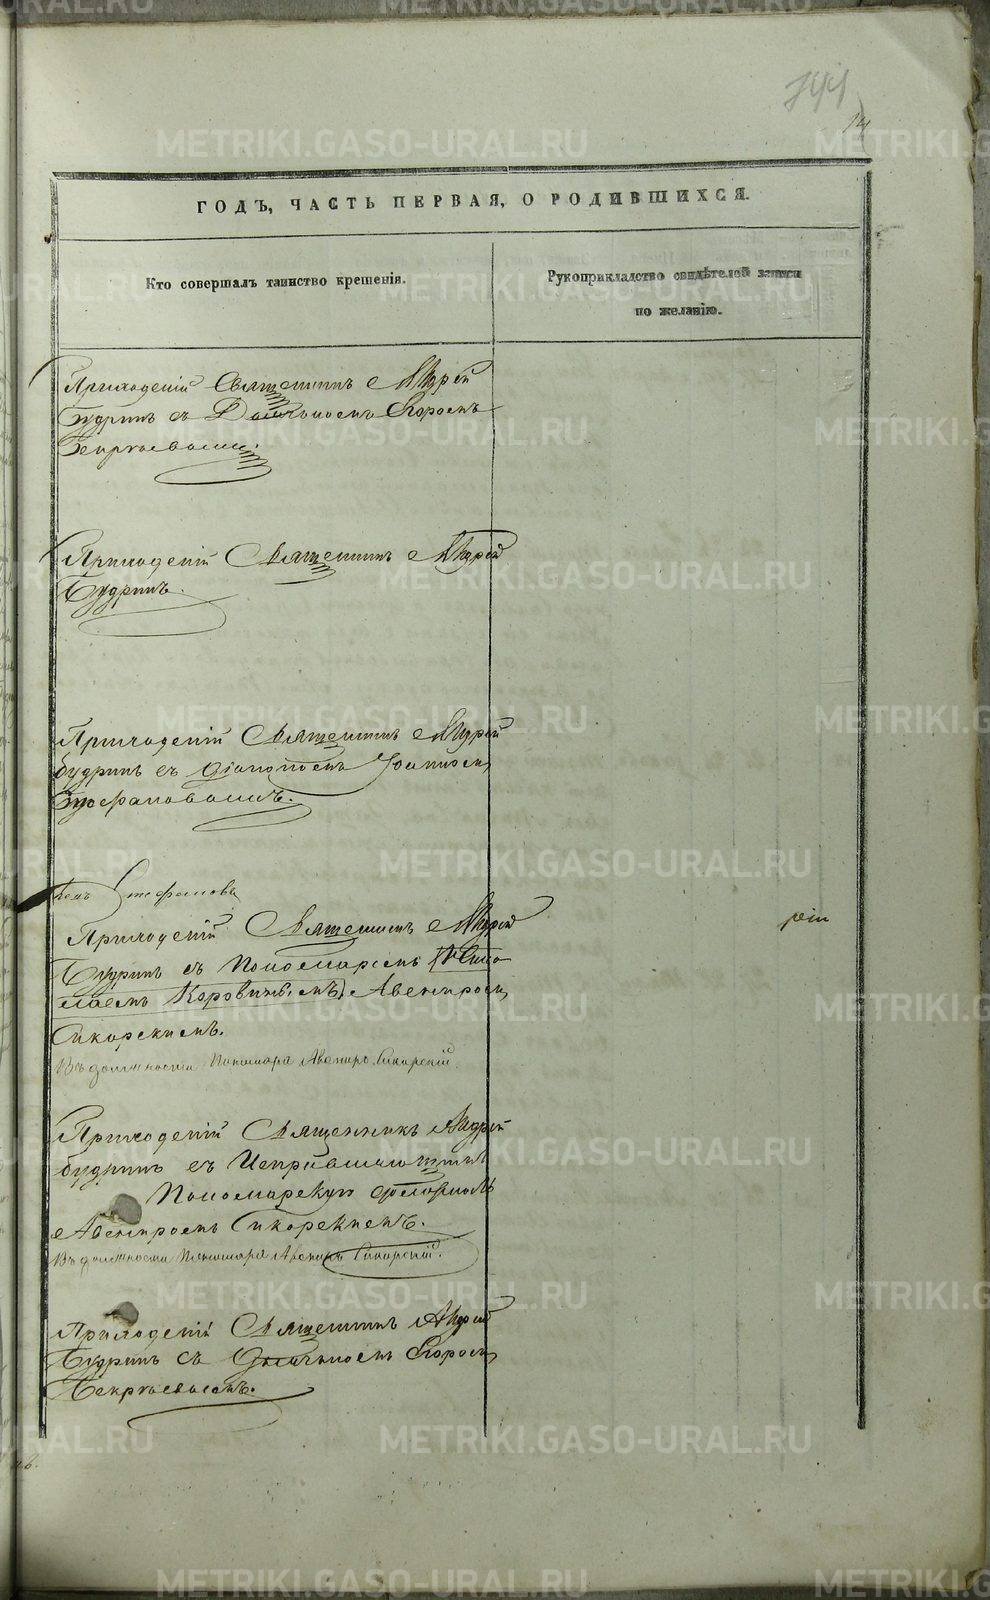 744
14
ГОДЪ, ЧАСТЬ ПЕРВАЯ, О РОДИВШИХСЯ.
Кто совершалъ таинство крещенія.
Рукоприкладство свидѣтелей записи
по желанію.
Приходскій Священникъ Андрей
Будринъ съ Дьячькомъ Егоромъ
Некрасовымъ.
Приходскій Священникъ Андрей
Будринъ.
Приходскій Священникъ Андрей
Будринъ съ Діакономъ Іоанномъ
Стефановымъ.
Стефановъ
Приходскій Священникъ Андрей
Будринъ съ Пономаремъ Нико
лаемъ Коровинымъ, Авениромъ
Сикорскимъ.
Въ должности Пономаря Авениръ Сикорскій
Приходскій Священникъ Андрей
Будринъ съ Исправляющимъ
Пономарскую должность
Авениромъ Сикорскимъ.
Въ должности Пономаря Авениръ Сикорскій.
Приходскій Священникъ Андрей
Будринъ съ Дьячькомъ Егоромъ
Некрасовымъ.
METRIKI.GASO-URAL.RU